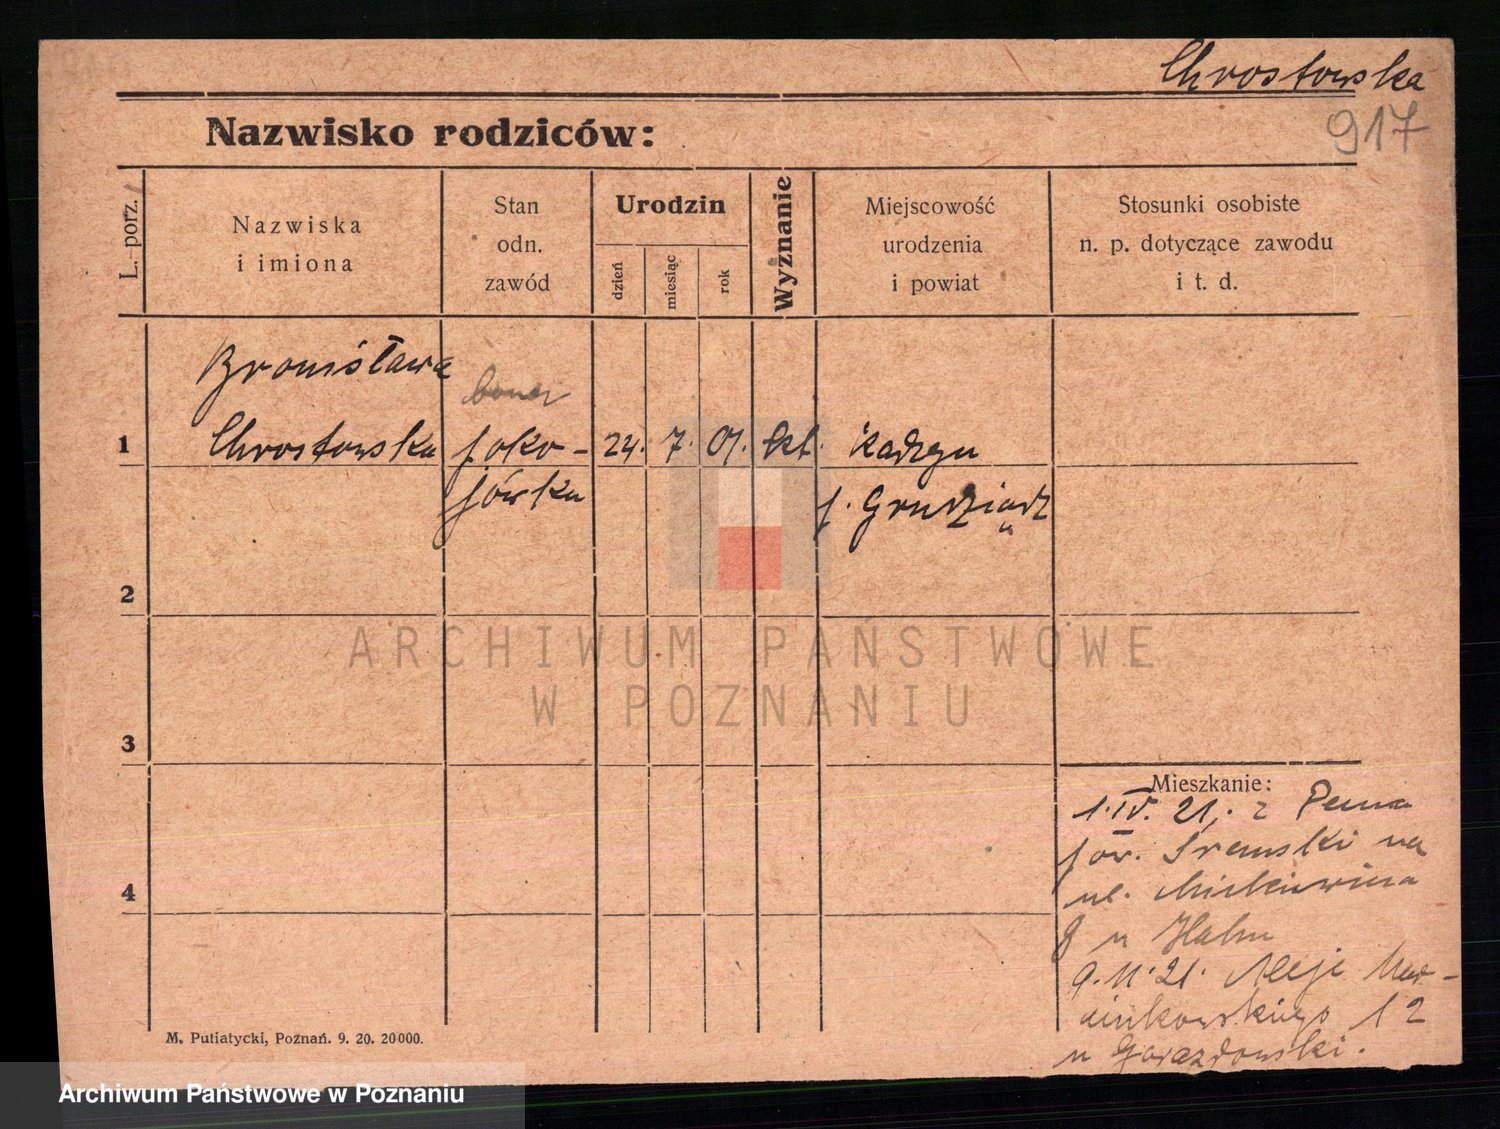 Chrostowska
917
Nazwisko rodziców:
L. porz.
Nazwiska
i imiona
Stan
odn.
zawód
Urodzin
dzień
miesiąc
rok
Wyznanie
Miejscowość
urodzenia
i powiat
Stosunki osobiste
n. p. dotyczące zawodu
i t. d.
Bronisława
bona
1 Chrostowska poko- 24. 7. 01. kt.
jówka
p. Grudziądz
2
3
4
Mieszkanie:
1. IV. 21. z
pow. Śremski na
ul. Mickiewicza
8 u Hahn
9. 11. 21. Aleje Mar-
cinkowskiego 12
u Gwiazdowski.
M. Putiatycki, Poznań. 9. 20. 20000.
ARCHIWUM PAŃSTWOWE
W POZNANIU
Archiwum Państwowe w Poznaniu